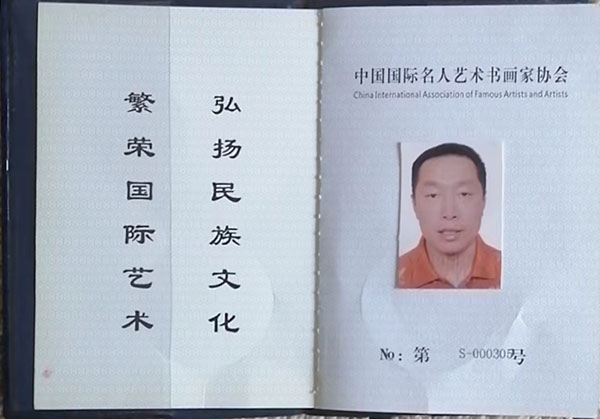 弘扬民族文化
繁荣国际艺术
中国国际名人艺术书画家协会
China International Association of Famous Artists and Artists
No：第 S-000305号